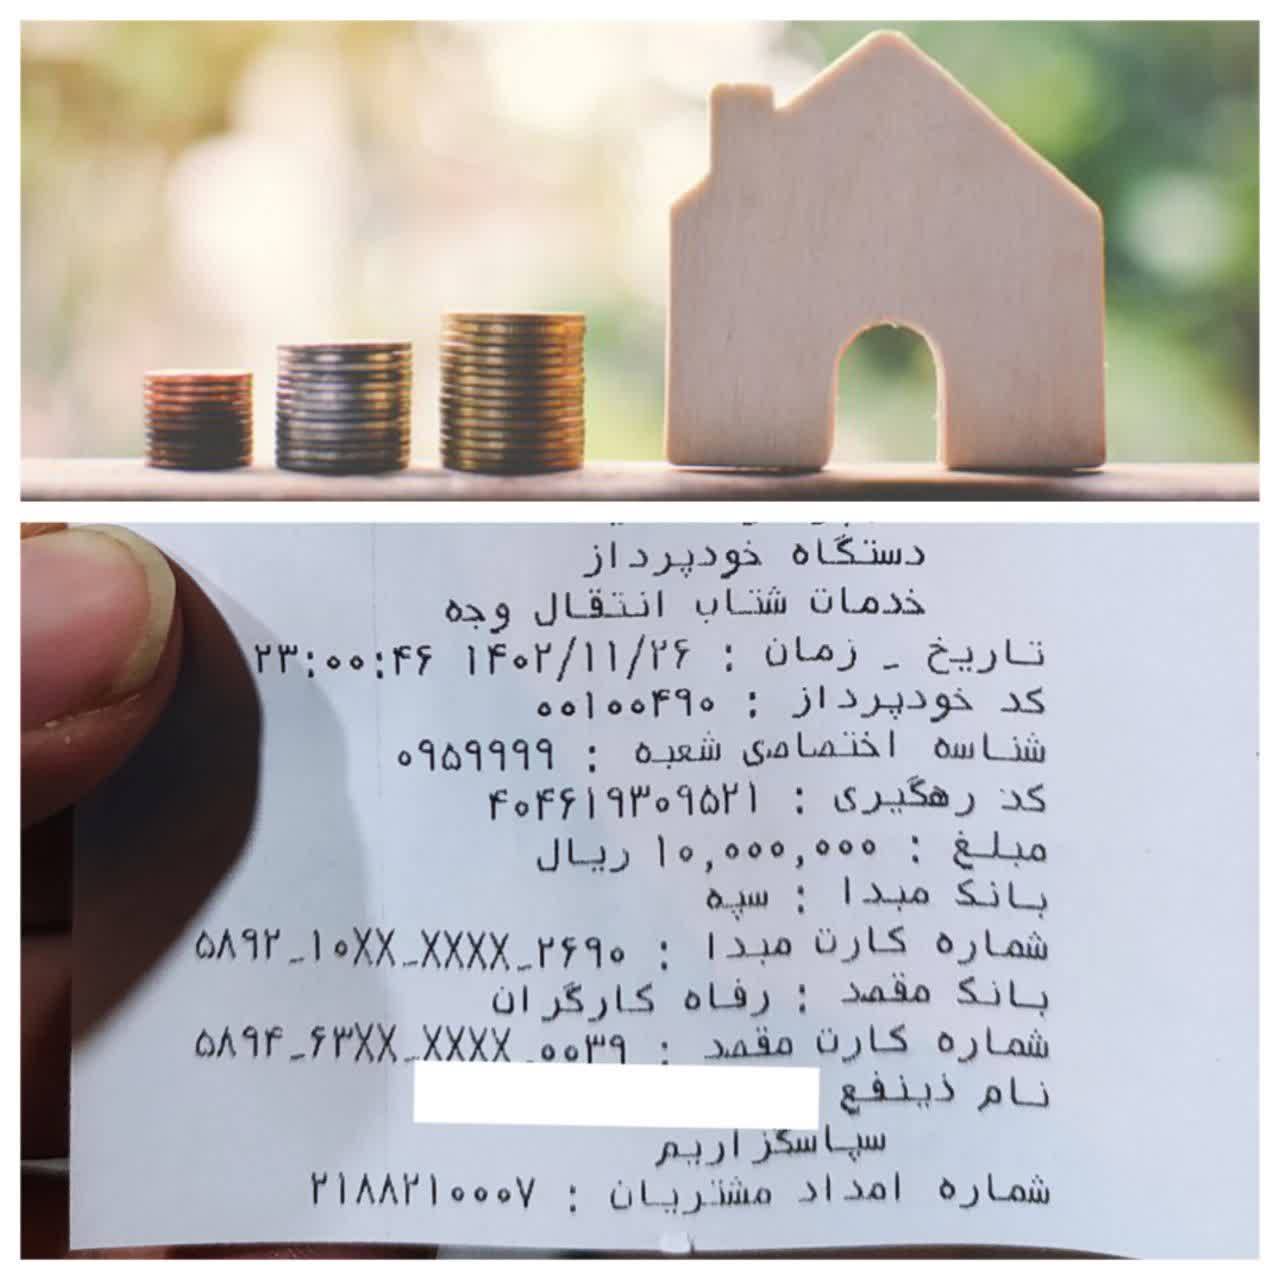 دستگاه خودپرداز
خدمات شتاب انتقال وجه
تاریخ - زمان : ۱۴۰۲/۱۱/۲۶ ۲۳:۰۰:۴۶
کد خودپرداز : ۰۰۱۰۰۴۹۰
شناسه اختصاصی شعبه : ۰۹۵۹۹۹۹
کد رهگیری : ۴۰۴۶۱۹۳۰۹۵۲۱
مبلغ : ۱۰,۰۰۰,۰۰۰ ریال
بانک مبدا : سپه
شماره کارت مبدا : ۵۸۹۲-۱۰XX-XXXX-۲۶۹۰
بانک مقصد : رفاه کارگران
شماره کارت مقصد : ۵۸۹۴-۶۳XX-XXXX-۰۰۳۹
نام ذینفع
سپاسگزاریم
شماره امداد مشتریان : ۲۱۸۸۲۱۰۰۰۷